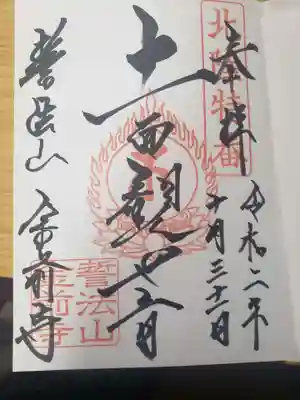 北陸特番
奉拝
令和二年
十月三十一日
十一面観世音
誓法山 金前寺
誓法山
金前寺